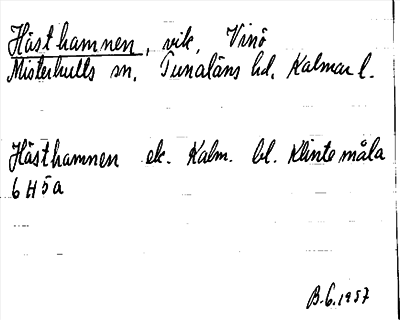 Hästhamnen, vik, Vinö
Misterhults sn, Tunaläns hd, Kalmar l.
Hästhamnen ek. Kalm. bl. Klintemåla
6 H 5 a
B.G. 1957